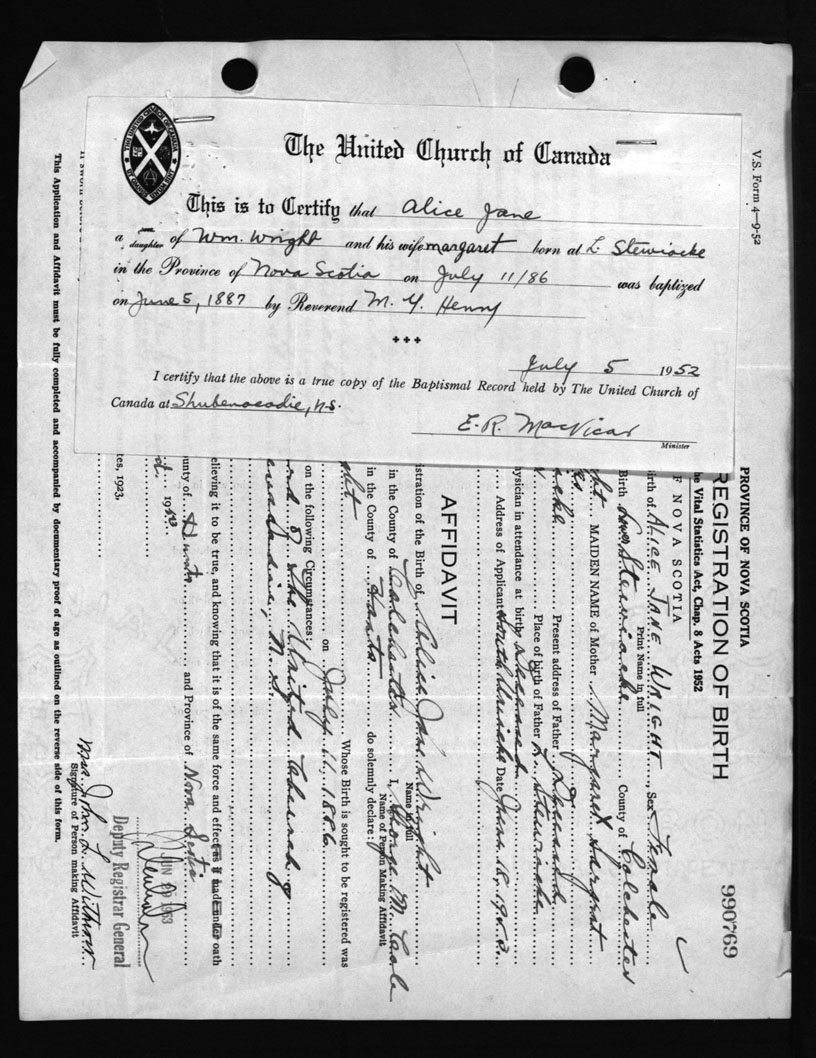 The United Church of Canada
This is to Certify that Alice Jane
a daughter of Wm. Wright and his wife Margaret born at L. Stewiacke
in the Province of Nova Scotia on July 11/86 was baptized
on June 5, 1887 by Reverend M. G. Henry
July 5 1952
I certify that the above is a true copy of the Baptismal Record held by The United Church of
Canada at Shubenacadie, N.S.
E. R. MacVicar
Minister
V.S. Form 4-9-52
PROVINCE OF NOVA SCOTIA
REGISTRATION OF BIRTH
990769
he Vital Statistics Act, Chap. 8 Acts 1952
F NOVA SCOTIA
Birth of ALICE JANE WRIGHT, Sex Female
Print Name in full
Birth Lower Stewiacke County of Colchester
ht MAIDEN NAME of Mother Margaret
acke Present address of Father Deceased
Place of birth of Father L. Stewiacke
ysician in attendance at birth Deceased
Address of Applicant South Uniacke Date June 18, 1953
AFFIDAVIT
stration of the Birth of Alice Jane Wright
Name in full
in the County of Colchester I, George M. Cole
Name of Person Making Affidavit
in the County of Hants do solemnly declare:
ht Whose Birth is sought to be registered was
on July 11, 1886
on the following Circumstances:
ord of the United Church of
enacadie, N.S.
elieving it to be true, and knowing that it is of the same force and effect as if made under oath
ounty of Hants and Province of Nova Scotia
d 1953
JUN 29 1953
Deputy Registrar General
tes, 1923,
Mrs. John L. Withrow
Signature of Person making Affidavit
This Application and Affidavit must be fully completed and accompanied by documentary proof of age as outlined on the reverse side of this form.